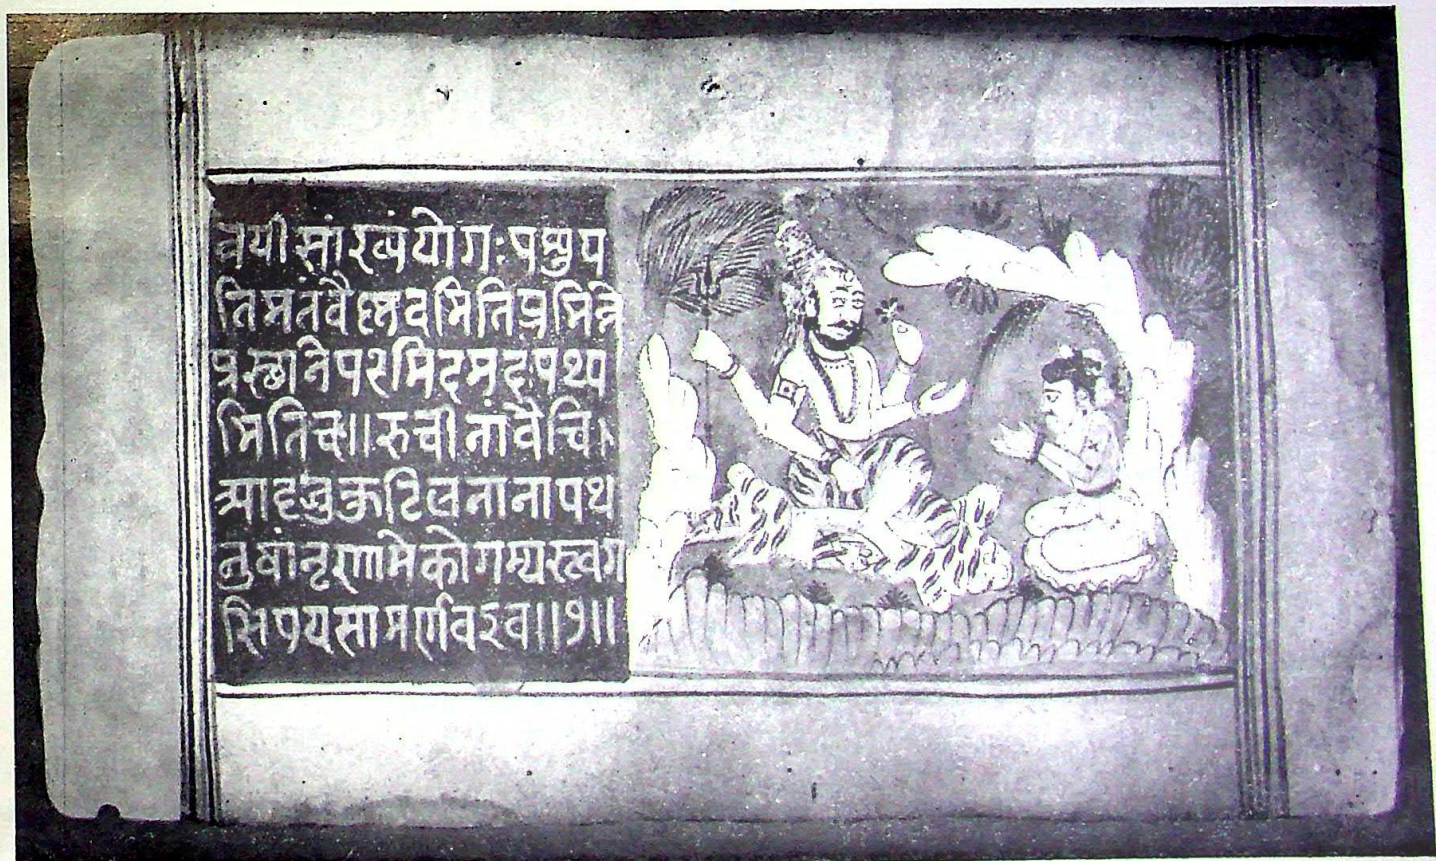 त्रयी सांख्यं योगः पशुप
तिमतं वैष्णवमिति प्रभिन्ने
प्रस्थाने परमिदमदः पथ्य
मिति च॥ रुचीनां वैचि
त्र्यादृजुकुटिलनानापथ
जुषां नृणामेको गम्यस्त्वम
सि पयसामर्णव इव॥७॥